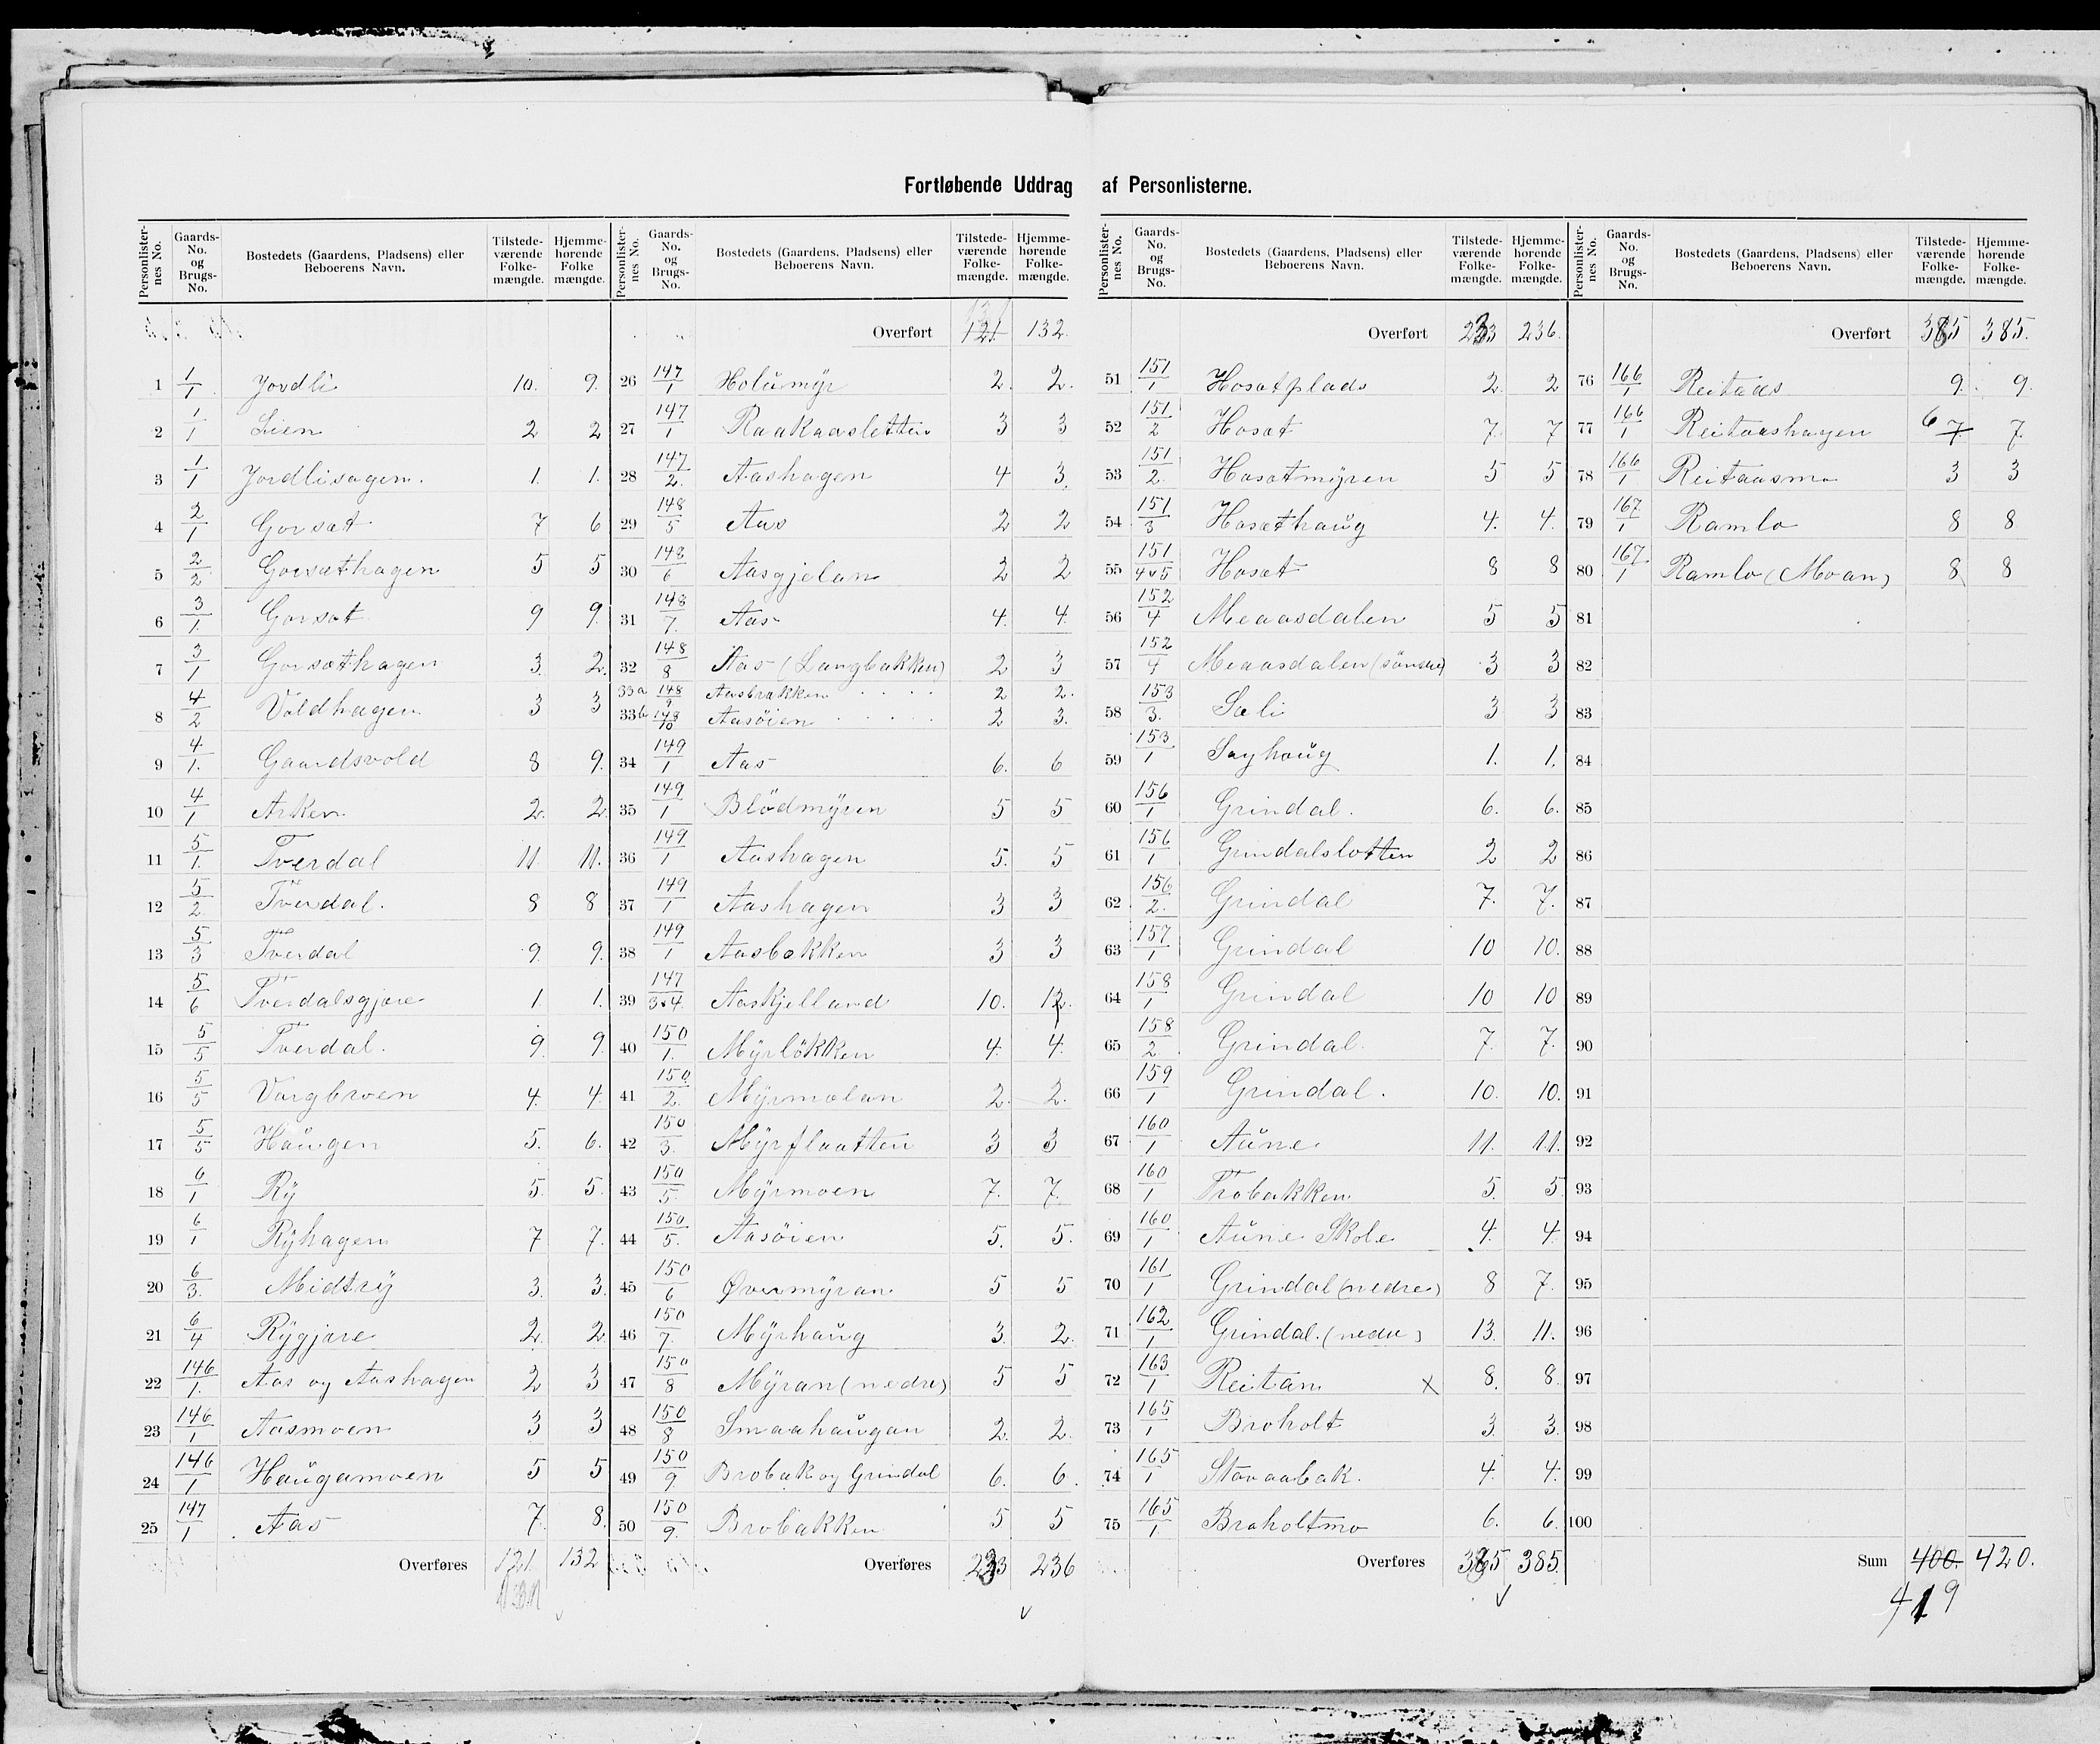 Fortløbende Uddrag af Personlisterne.
Personlister-nes No. Gaards-No. og Brugs-No. Bostedets (Gaardens, Pladsens) eller Beboerens Navn. Tilstede-værende Folke-mængde. Hjemme-hørende Folke mængde.
1 1/1 Jordli 10. 9.
2 1/1 Lien 2 2
3 1/1 Jordlisagen. 1. 1.
4 2/1 Gorsæt 7 6
5 2/2 Gorsæthagen 5 5
6 3/1. Gorsæt 9 9.
7 3/1 Gorsæthagen 3. 2.
8 4/2 Voldhagen 3 3
9 4/1. Gaardsvold 8 9.
10 4/1 Arken 2. 2.
11 5/1. Tverdal 11. 11.
12 5/2. Tverdal. 8 8
13 5/3 Tverdal 9. 9.
14 5/6 Tverdalsgjære 1. 1.
15 5/5 Tverdal. 9. 9.
16 5/5 Vargbroen 4. 4.
17 5/5 Haugen 5. 6.
18 6/1 Ry 5. 5.
19 6/1 Ryhagen 7 7.
20 6/3. Midtry 3. 3.
21 6/4 Rygjære 2. 2.
22 146/1. Aas og Aashagen 2 3
23 146/1 Aasmoen 3 3
24 146/1 Haugamoen 5 5
25 147/1 Aas 7. 8.
Overføres 121. 132
Personlister-nes No. Gaards-No. og Brugs-No. Bostedets (Gaardens, Pladsens) eller Beboerens Navn. Tilstede-værende Folke-mængde. Hjemme-hørende Folke-mængde.
Overført 121. 132.
26 147/1 Holumyr 2. 2.
27 147/1 Raakaasletten 3 3
28 147/2. Aashagen 4 3.
29 148/5 Aas 2 2
30 148/6 Aasgjelan 2 2
31 148/7. Aas 4. 4.
32 148/8 Aas (Langbakken) 2 3
33a 148/9 Aasbrækken 2 2.
33b 148/10 Aasøien 2 3.
34 149/1 Aas 6. 6
35 149/1 Blödmyren 5 5
36 149/1 Aashagen 5. 5
37 149/1 Aashagen 3 3
38 149/1 Aasbakken 3 3
39 147/3&4. Aaskjelland 10. 12.
40 150/1. Myrlökken 4. 4.
41 150/2. Myrmælan 2. 2.
42 150/3. Myrflaatten 3 3
43 150/5. Myrmoen 7. 7.
44 150/5. Aasøien 5. 5.
45 150/6 Øvermyran 5 5
46 150/7. Myrhaug 3. 2.
47 150/8 Myran (nedre) 5 5
48 150/8 Smaahaugan 2. 2.
49 150/9. Brobak og Grindal 6. 6.
50 150/9. Brobakken 5 5
Overføres 233 236
Personlister-nes No. Gaards-No. og Brugs-No. Bostedets (Gaardens, Pladsens) eller Beboerens Navn. Tilstede-værende Folke-mængde. Hjemme-hørende Folke-mængde.
Overført 233 236.
51 151/1 Hosætplads 2. 2
52 151/2 Hosæt 7. 7
53 151/2. Hosætmyren 5 5
54 151/3 Hosæthaug 4. 4.
55 151/4&5 Hosæt 8 8
56 152/4 Meaasdalen 5 5
57 152/4 Meaasdalen (söndre) 3 3
58 153/3. Sæli 3 3
59 153/1 Saghaug 1. 1.
60 156/1 Grindal. 6. 6.
61 156/1 Grindalsletten 2 2
62 156/2. Grindal 7. 7.
63 157/1 Grindal 10 10.
64 158/1 Grindal 10 10
65 158/2 Grindal. 7. 7.
66 159/1 Grindal. 10. 10.
67 160/1 Aune 11. 11.
68 160/1 Trobakken 5. 5
69 160/1 Aune Skole 4. 4.
70 161/1 Grindal (nedre) 8 7.
71 162/1 Grindal. (nedre) 13. 11.
72 163/1 Reitan x 8. 8.
73 165/1 Broholt 3. 3.
74 165/1 Stavaabak. 4. 4.
75 165/1 Braholtmo 6. 6.
Overføres 385 385.
Personlister-nes No. Gaards-No. og Brugs-No. Bostedets (Gaardens, Pladsens) eller Beboerens Navn. Tilstede-værende Folke-mængde. Hjemme-hørende Folke-mængde.
Overført 385 385.
76 166/1 Reitaas 9. 9.
77 166/1 Reitaashagen 6 7. 7.
78 166/1 Reitaasmo 3 3
79 167./1 Ramlo 8 8
80 167/1 Ramlo (Moan) 8 8
81
82
83
84
85
86
87
88
89
90
91
92
93
94
95
96
97
98
99
100
Sum 400. 420.
419